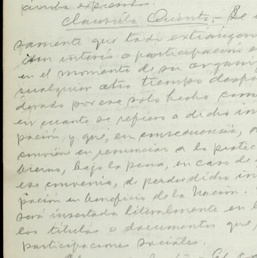 arriba expresado.
Clausula Quinta.- Se e
samente que todo extranjero
isin interés o participación s
en el momento de su organi
cualquier otro tiempo despu
derado por ese solo hecho com
en cuanto se refiere a dicho in
pación y, que, en consecuencia,
convión en renunciar a la protec
bierno, bajo la pena, en caso de
ese convenio, de perder dicho in
pación en beneficio de la Nación.
será insertada literalmente en l
los titulos o documentos que,
participaciones sociales.